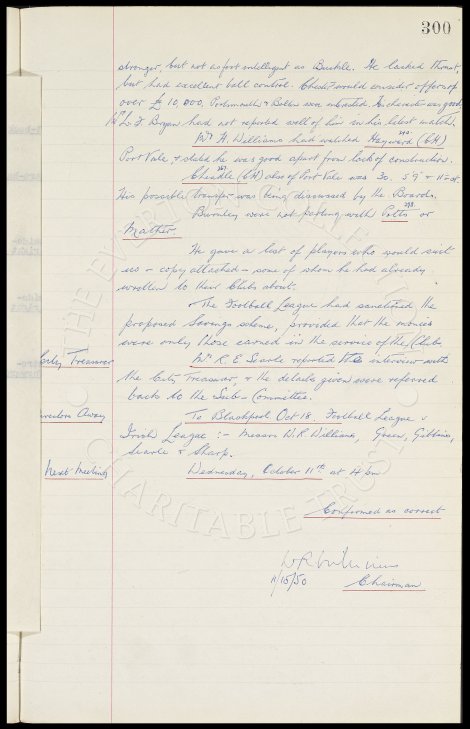 300
stronger, but not as fast intelligent as Buckle. He lacked thrust,
but had excellent ball control. Chester would consider offers of
over £10,000. Portsmouth & Bolton were interested. Character was good
Mr L. F. Bryan had not reported well of him in his latest match.
Mr H. Williams had watched Hayward (CH)
Port Vale & stated he was good apart from lack of construction.
Cheadle (CH) also of Port Vale was 30. 5'9" & 11st.
His possible transfer was being discussed by the Boards.
Burnley were not parting with Potts or
Mather.
He gave a list of players who would suit
us - copy attached - some of whom he had already
written to their Clubs about.
The Football League had sanctioned the
proposed Savings scheme, provided that the monies
were only those earned in the service of the Club.
City Treasurer
Mr R. E. Searle reported his interview with
the City Treasurer, & the details given were referred
back to the Sub-Committee.
Away
To Blackpool Oct 18. Football League v
Irish League :- Messrs W.R. Williams, Green, Gibbins,
Searle & Sharp.
Next Meeting
Wednesday, October 11th at 4 pm
Confirmed as correct
11/10/50
Chairman
THE EVERTON
CHARITABLE TRUST